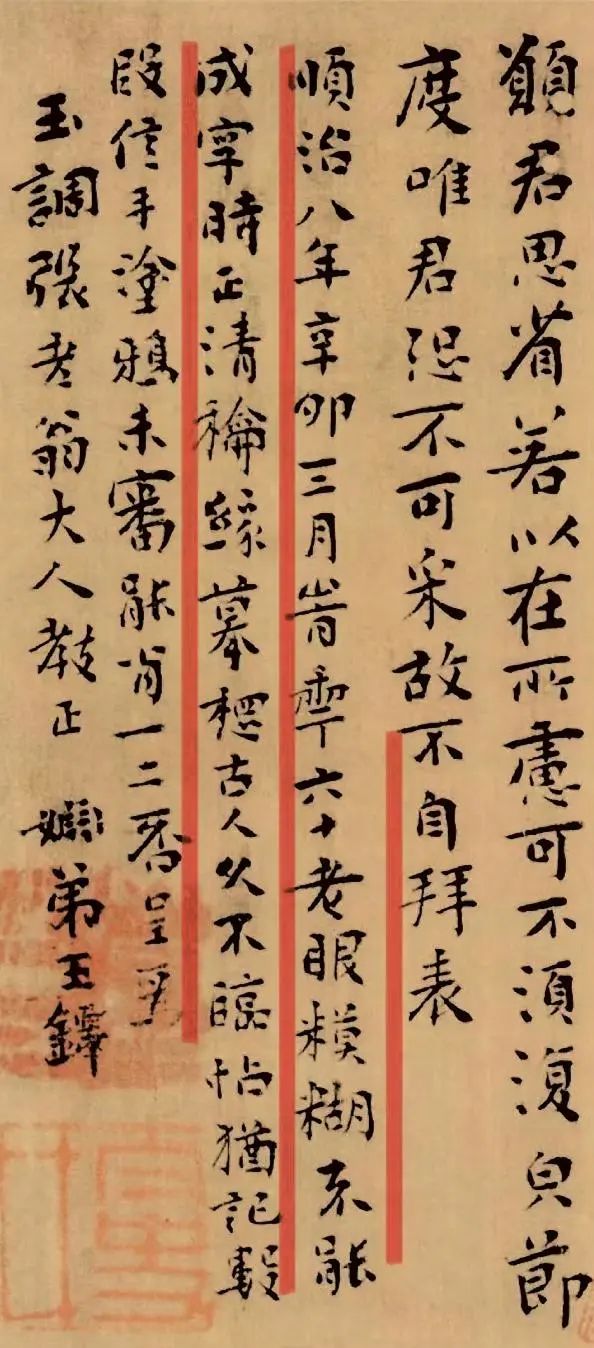 願君思省若以在所慮可不須復皃節
度唯君恐不可采故不自拜表
順治八年辛卯三月六十老眼糢糊不能
成字時正清緣摹古人久不臨帖猶記數
段信手塗鴉未審能肖一二否呈
玉調張老翁大人教正 姻弟王鐸